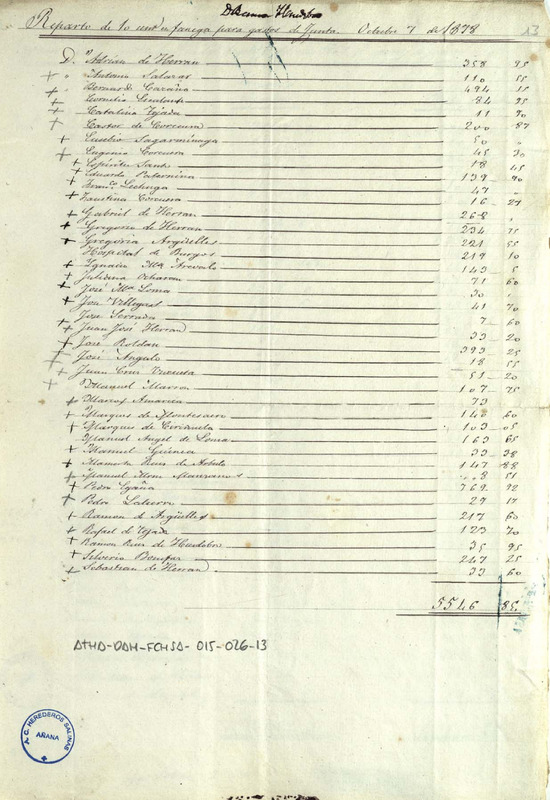 Reparto de 10 cent. en fanega para gastos de Junta. Octubre 7 de 1878
13
D. Adrian de Herran 358 95
+ " Antonio Salazar 110 55
+ " Bernardo Caraño 494 55
+ Cornelio 84 95
+ Catalina Tejada 11 70
+ Castor de Corcuera 200 87
Eusebio Sagarmínaga 50 "
+ Eugenio Corcuera 45 30
+ Espíritu Santo 18 45
+ Eduardo Paternina 139 90
+ Franco Lecínga 47 "
+ Faustina Corcuera 16 27
+ Gabriel de Herran 268 "
+ Gregorio de Herran 234 75
+ Gregoria Argüelles 221 55
Hospital de Burgos 219 10
+ Ignacio Ma. Arevalo 143 5
+ Juliana Ocharan 71 60
+ José Ma. Loma 30 "
+ Jon Villegas 41 70
Jose Serrada 7 60
+ Juan José Herran 33 20
+ José Roldan 393 25
+ José Angulo 18 55
+ Juan Cruz 51 20
+ Manuel 107 75
+ Marcos Amarica 73
+ Marques de Montesacro 140 60
+ Marques de Ciriñuela 103 05
Manuel Angel de Loma 163 65
+ Manuel Guinea 33 38
+ Mamerta Ruiz de Arbulo 147 88
+ Manuel Manzanos 8 51
+ Pedro Egaña 769 92
+ Pedro Laturre 27 17
+ Ramon de Argüelles 217 60
+ Rafael de Tejada 123 70
+ Ramon Ruiz de Huidobro 35 95
+ Silverio 247 25
+ Sebastian de Herran 33 60
5546 85
ATHA-DAH-FCHSA-015-026-13
A.C. HEREDEROS SALINAS
AÑANA